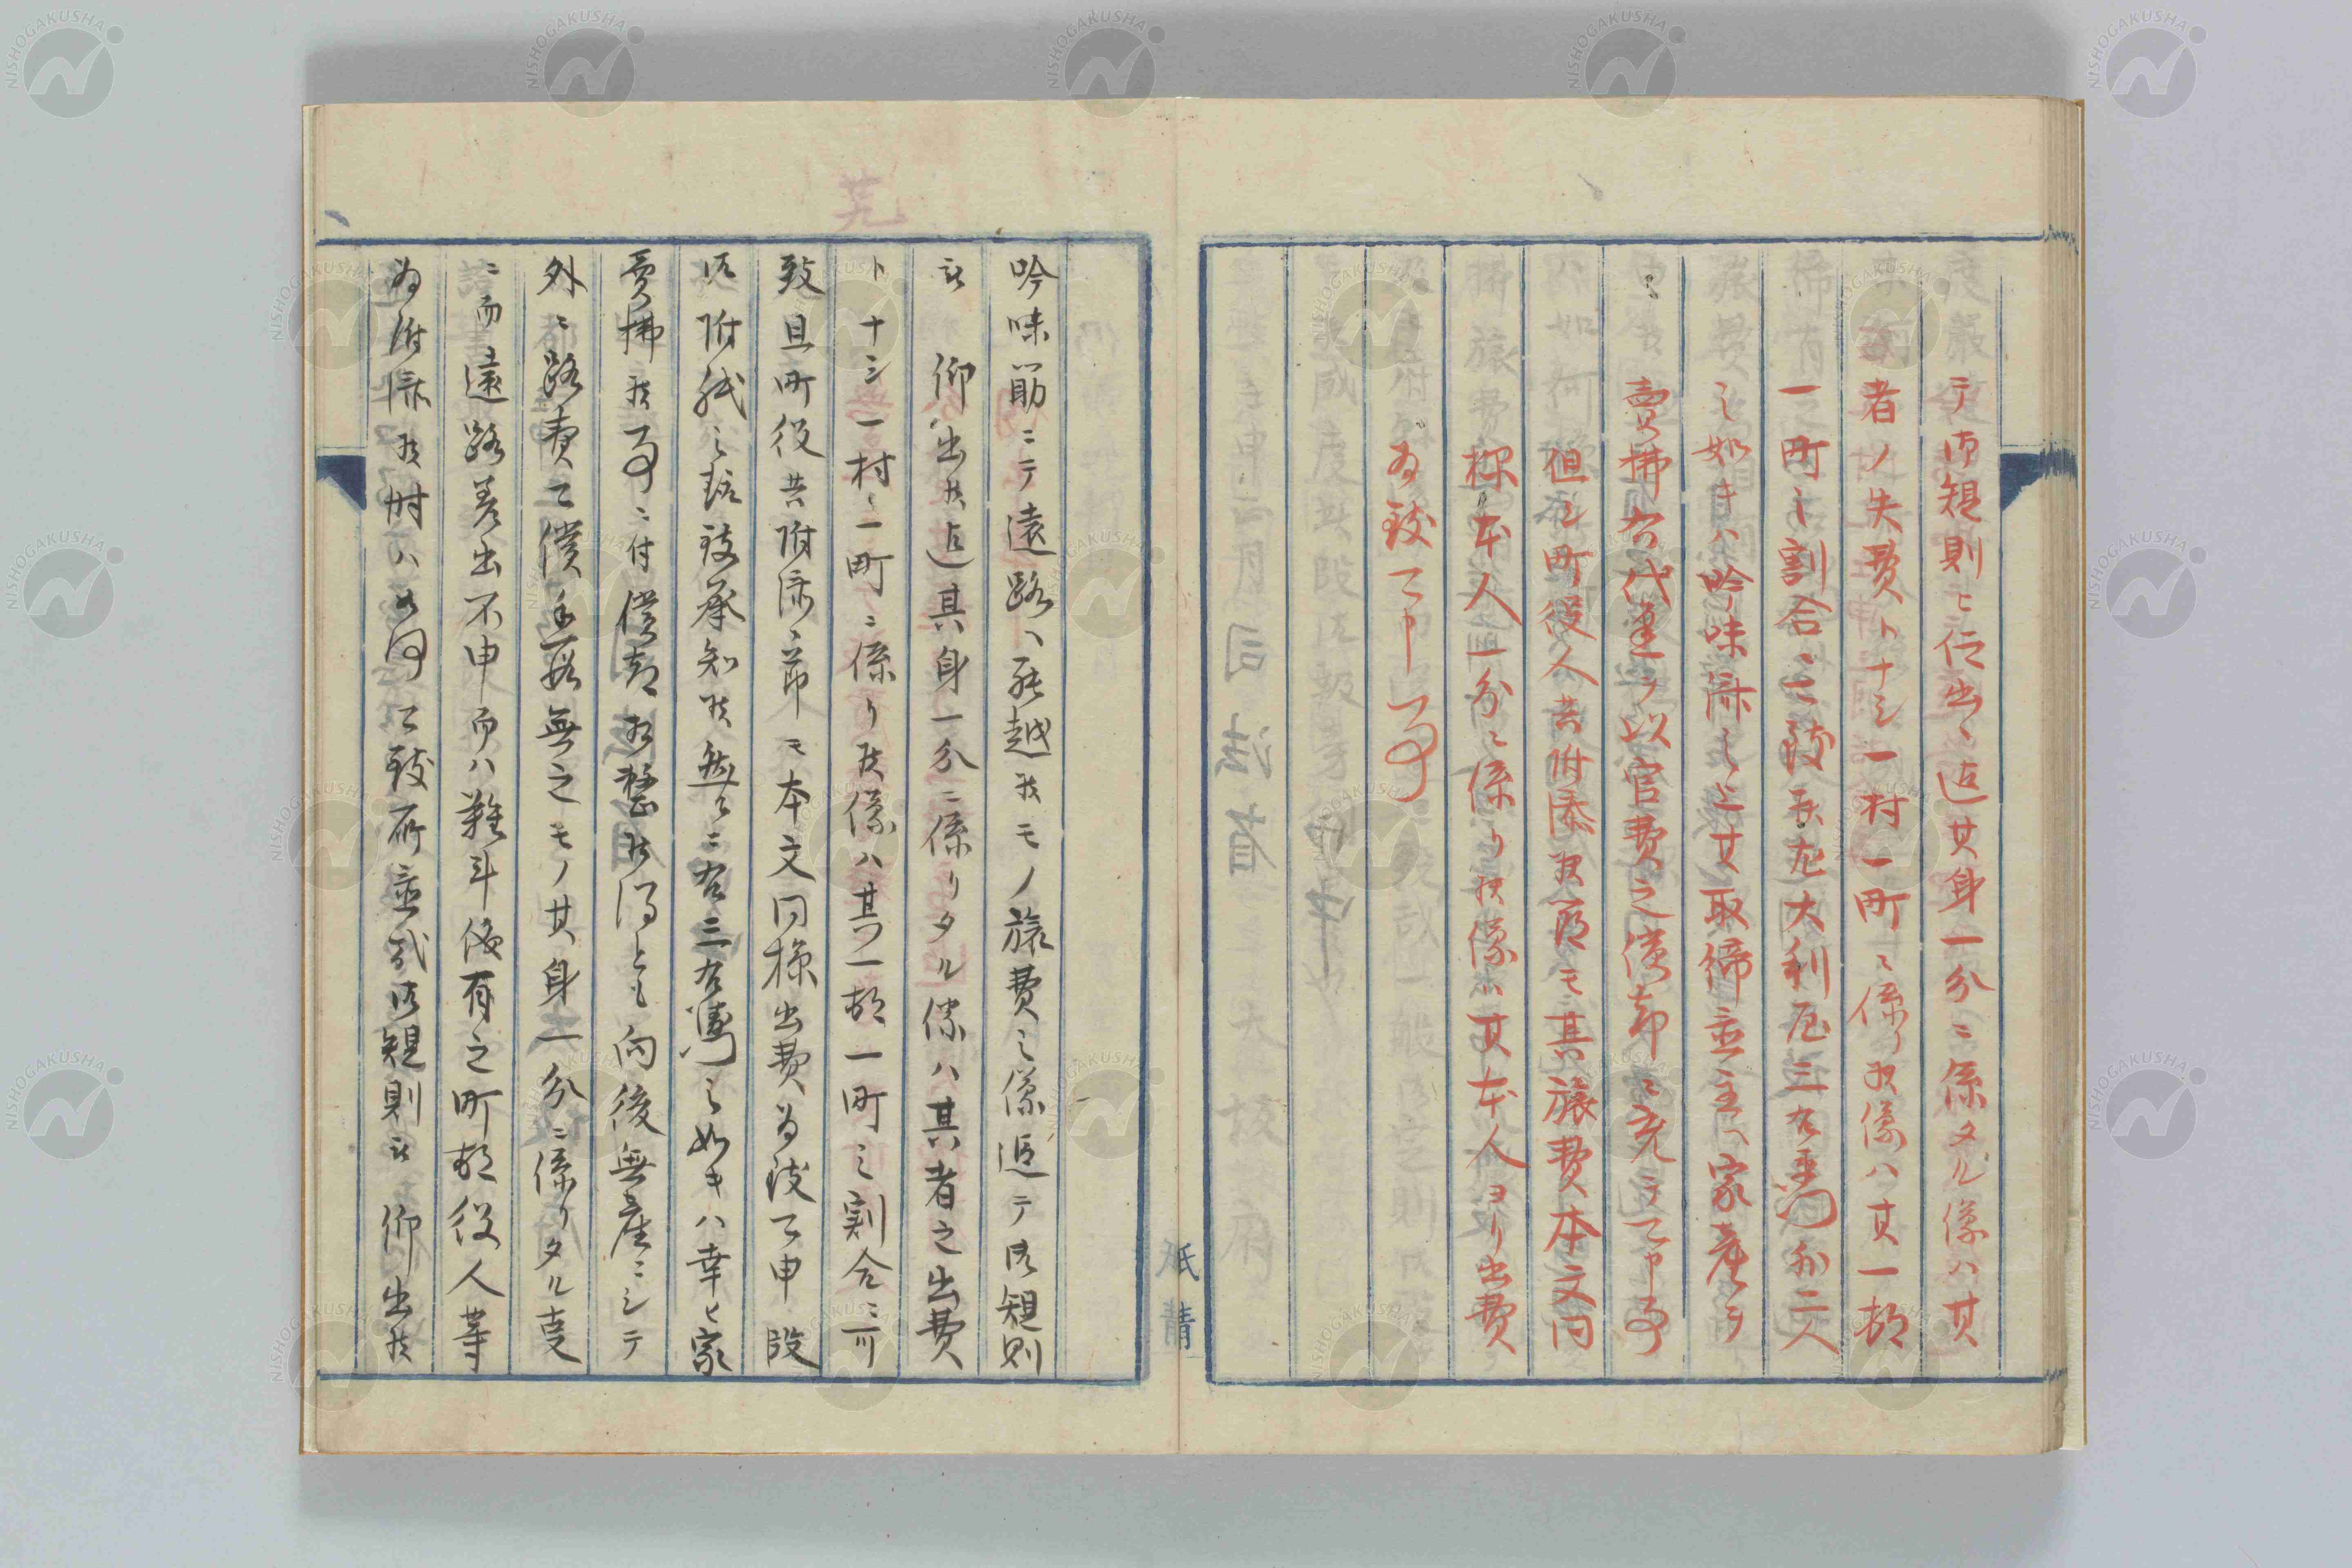 テ御規則ヒ仰出候迄其身一分ニ係タル儀ハ其
者ノ失費トナシ一村一町ニ係り候儀ハ其一村
一町之割合ニ可致候尤大利屋三右衛門外二人
之如キハ吟味済之上其取締並主家産ヲ
売払右代金ヲ以官費之償却ニ充テ可申事
但シ町役人共附添候節モ其旅費本文同
様本人一分ニ係り候儀ハ其本人ヨリ出費
為致可申事
吟味筋ニテ遠路へ罷越候モノ旅費之儀追テ御規則
被 仰出候迄其身一分ニ係リタル儀ハ其者之出費
トナシ一村一町ニ係リ候儀ハ其一村一町之割合ニ可
致且町役共附添之節モ本文同様出費為致可申段
御附紙之趣致承知候然ルニ右三右衛門之如キハ幸ヒ家
売払候事ニ付償却相整候得とも向後無産ニシテ
外ニ路費可償手段無之モノ其身一分ニ係リタル事
ニ而遠路差出不申而ハ難斗儀有之町村役人等
為附添候時ハ如何可致所並式御規則被 仰出候